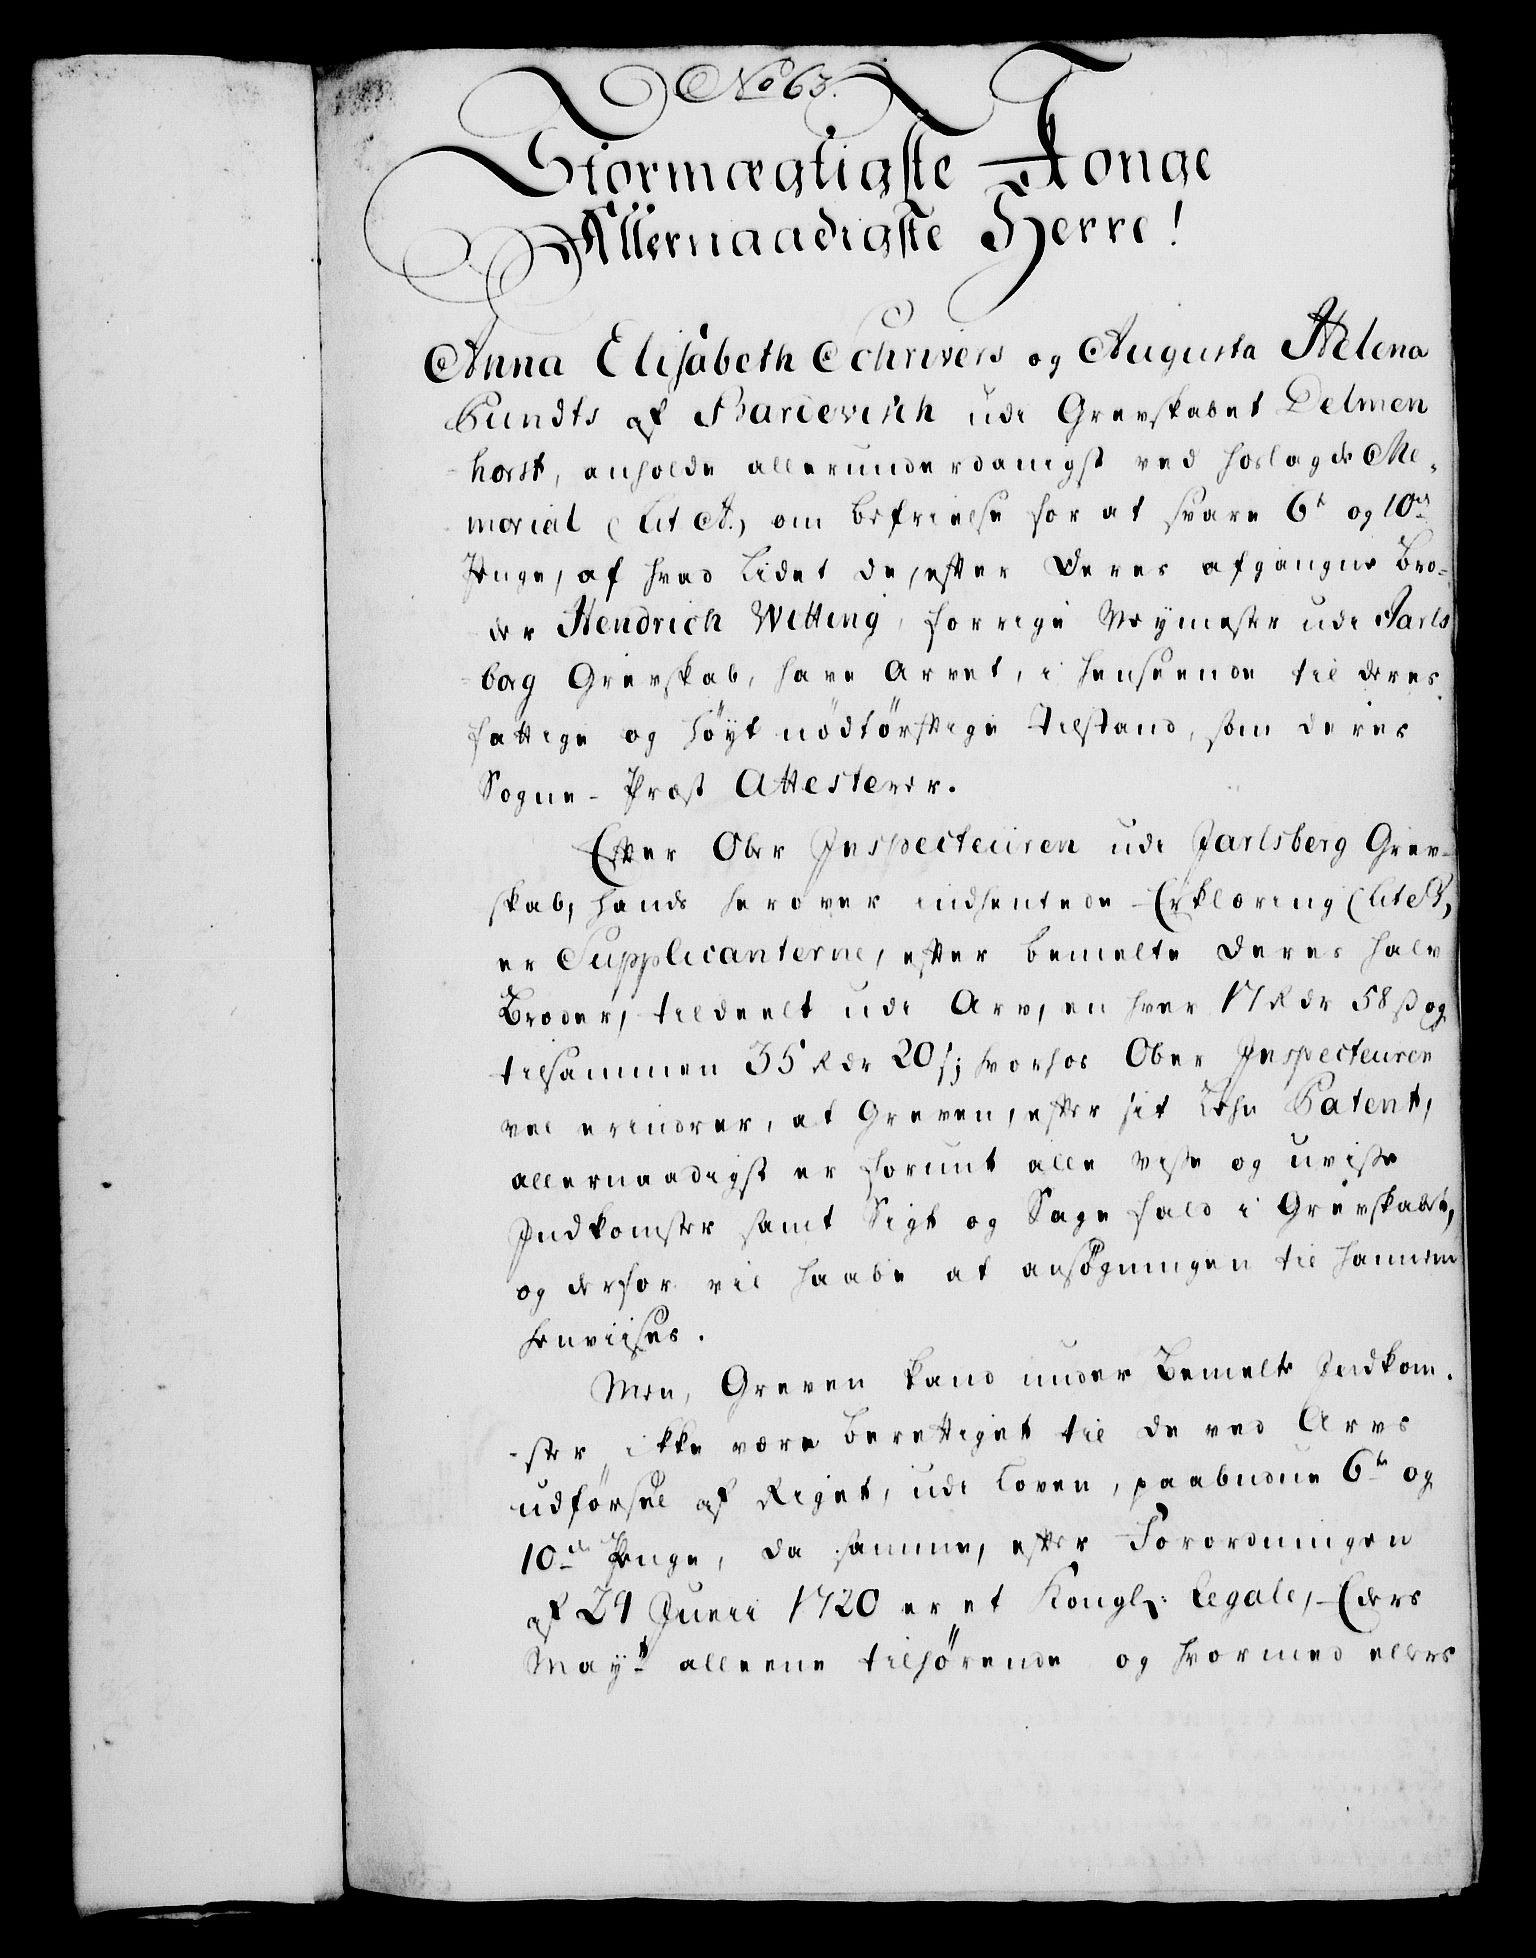 No 63.
Stormægtigste Konge
Allernaadigste Herre!
Anna Elisabeth Schrivers og Augusta Helena
Gundts af Bardewisch udi Grevskabet Delmen
horst, anholde allerunderdanigst ved hoslagde Me-
morial (Lit A.) om befrielse for at svare 6te og 10de
Penge, af hvad Lidet de, efter Deres afgangne Bro-
der Hendrich Witting, forrige Veymester udi Jarls
borg Grevskab, have Arvet, i henseende til deres
fattige og höyt nödtörftige tilstand, som deres
Sogne-Præst Attesterer.
Efter Ober Inspecteuren udi Jarlsberg Grev-
skab, hands herover indhentede Erklæring (Lit B,
er Supplicanterne, efter bemelte deres halv
Broder, tildeelt udi Arv, en hver 17 Rdr 58 ß og
tilsammen 35 Rdr 20 ß; hvorhos Ober Inspecteuren
vel erindrer, at Greven, efter sit Lehn Patent,
allernaadigst er forunt alle visse og uvisse
Indkomster samt Sigt og Sage fald i Grevskabet,
og derfor vil haabe at ansögningen til hannem
henviises.
Men, Greven kand under Bemelte Indkom-
ster ikke være berettiget til de ved Arvs
udförsel af Riget, udi Loven, paabudne 6te og
10de Penge, da samme, efter Forordningen
af 24 Junii 1720 er et Kongl: Regale, Eders
Mayt alleene tilhörende og hvormed ellers